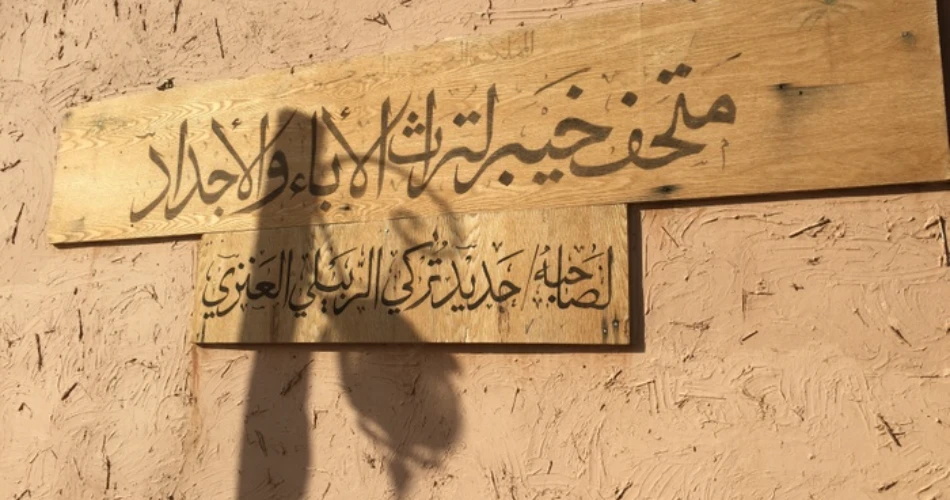 متحف خيبر لتراث الأباء والأجداد
لصاحبه / جديد تركي الربيلي العنزي